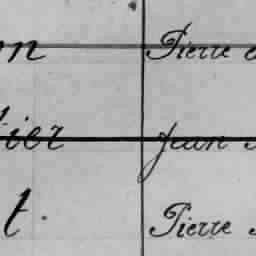 on Pierre
tier Jean
t. Pierre